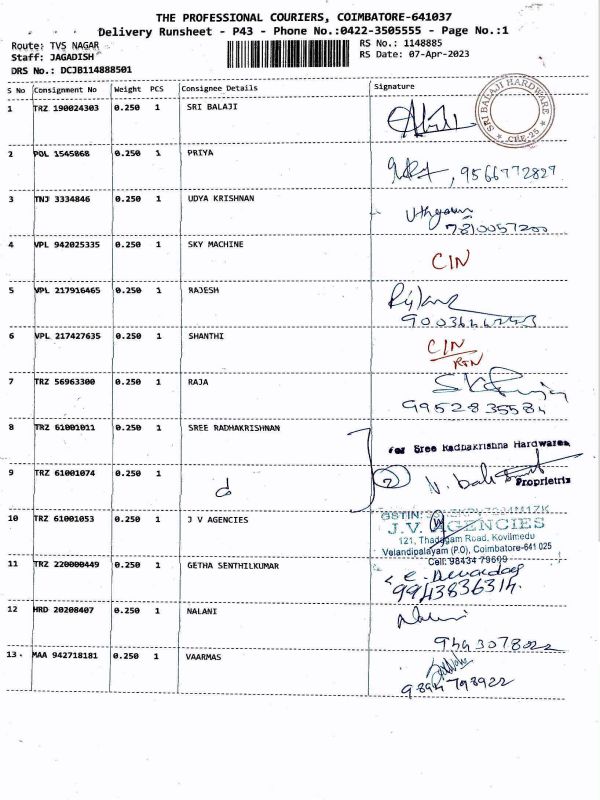 THE PROFESSIONAL COURIERS, COIMBATORE-641037
Delivery Runsheet - P43 - Phone No.:0422-3505555 - Page No.:1
Route: TVS NAGAR
RS No.: 1148885
Staff: JAGADISH
RS Date: 07-Apr-2023
DRS No.: DCJB114888501
S No Consignment No Weight PCS Consignee Details Signature
1 TRZ 190024303 0.250 1 SRI BALAJI
SRI BALAJI HARDWARE
CBE-25
2 POL 1545068 0.250 1 PRIYA
, 9566772827
3 TNJ 3334846 0.250 1 UDYA KRISHNAN
7810057200
4 VPL 942025335 0.250 1 SKY MACHINE CIN
5 VPL 217916465 0.250 1 RAJESH
6 VPL 217427635 0.250 1 SHANTHI CIN
RTN
7 TRZ 56963300 0.250 1 RAJA
9952835584
8 TRZ 61001011 0.250 1 SREE RADHAKRISHNAN
for Sree Radhakrishna Hardwares
9 TRZ 61001074 0.250 1
2
Proprietrix
10 TRZ 61001053 0.250 1 J V AGENCIES
GSTIN:
J.V. AGENCIES
121, Thadagam Road, Kovilmedu
Velandipalayam (P.O), Coimbatore-641 025
Cell: 98434 79699
11 TRZ 220000449 0.250 1 GETHA SENTHILKUMAR
9943836314
12 HRD 20208407 0.250 1 NALANI
Nalini
9443078022
13 MAA 942718181 0.250 1 VAARMAS
9894798922